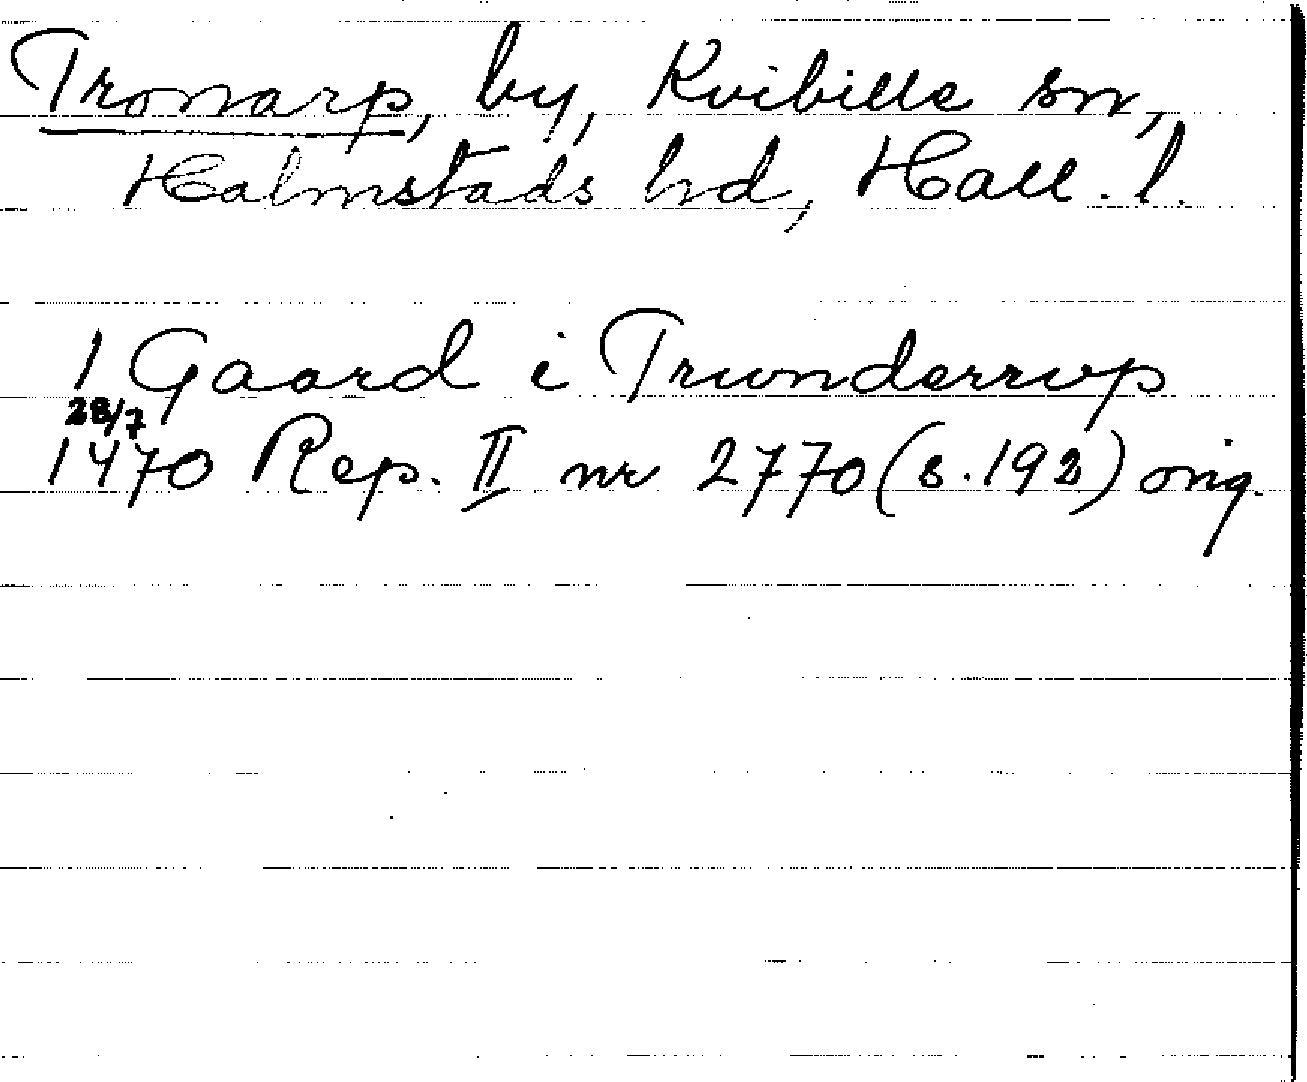 Tronarp, by, Kvibille sn,
Halmstads hd, Hall. l.
1 Gaard i Trwnderrwp
28/7
1470 Rep. II nr 2770 (s. 193) orig.